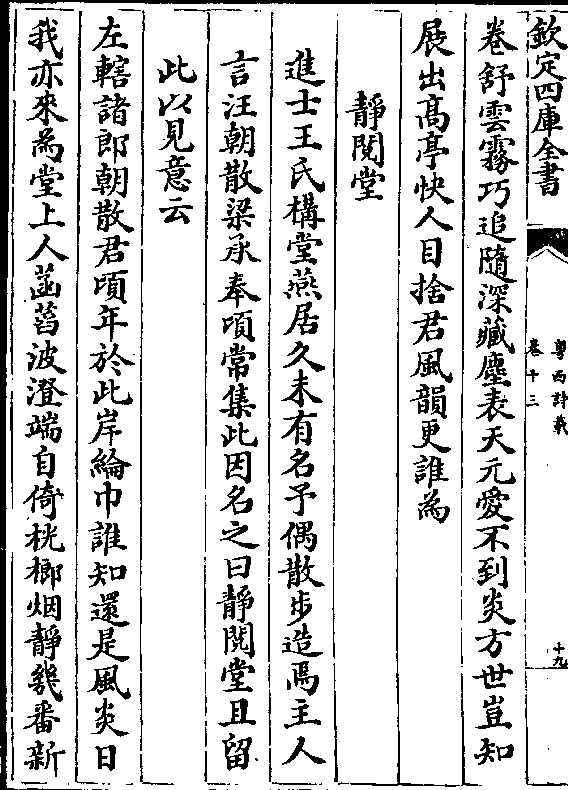 欽定四庫全書
粵西詩載
卷十三
十九
卷舒雲霧巧追隨深藏塵表天元愛不到炎方世豈知
展出髙亭快人目捨君風韻更誰為
靜閱堂
進士王氏構堂燕居久未有名予偶散步造焉主人
言汪朝散梁承奉頃常集此因名之曰靜閱堂且留
此以見意云
左轄諸郎朝散君頃年於此岸綸巾誰知還是風炎日
我亦來為堂上人菡萏波澄端自倚桄榔烟靜幾番新